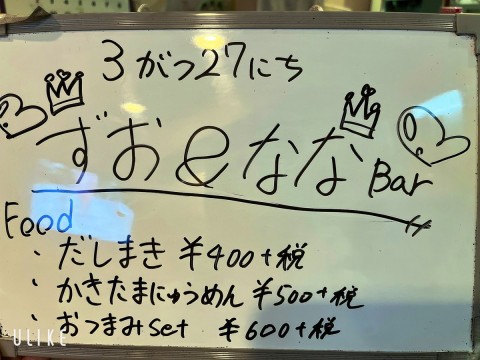 3がつ27にち
ずお&なな Bar
Food
・だしまき ¥400+税
・かきたまにゅうめん ¥500+税
・おつまみset ¥600+税
ULIKE